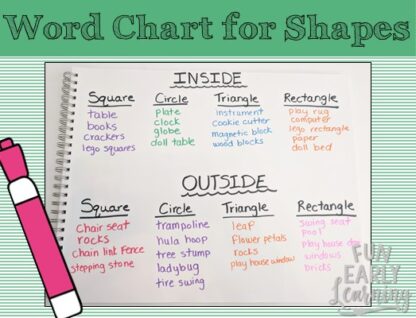 Word Chart for Shapes
INSIDE
Square
table
books
crackers
lego squares
Circle
plate
clock
globe
doll table
Triangle
instrument
cookie cutter
magnetic block
wood blocks
Rectangle
play rug
computer
lego rectangle
paper
doll bed
OUTSIDE
Square
Chair seat
rocks
chain link Fence
stepping stone
Circle
trampoline
hula hoop
tree stump
ladybug
tire swing
Triangle
leaf
Flower petals
rocks
play house window
Rectangle
swing seat
pool
play house
windows
bricks
FUN
EARLY
Learning